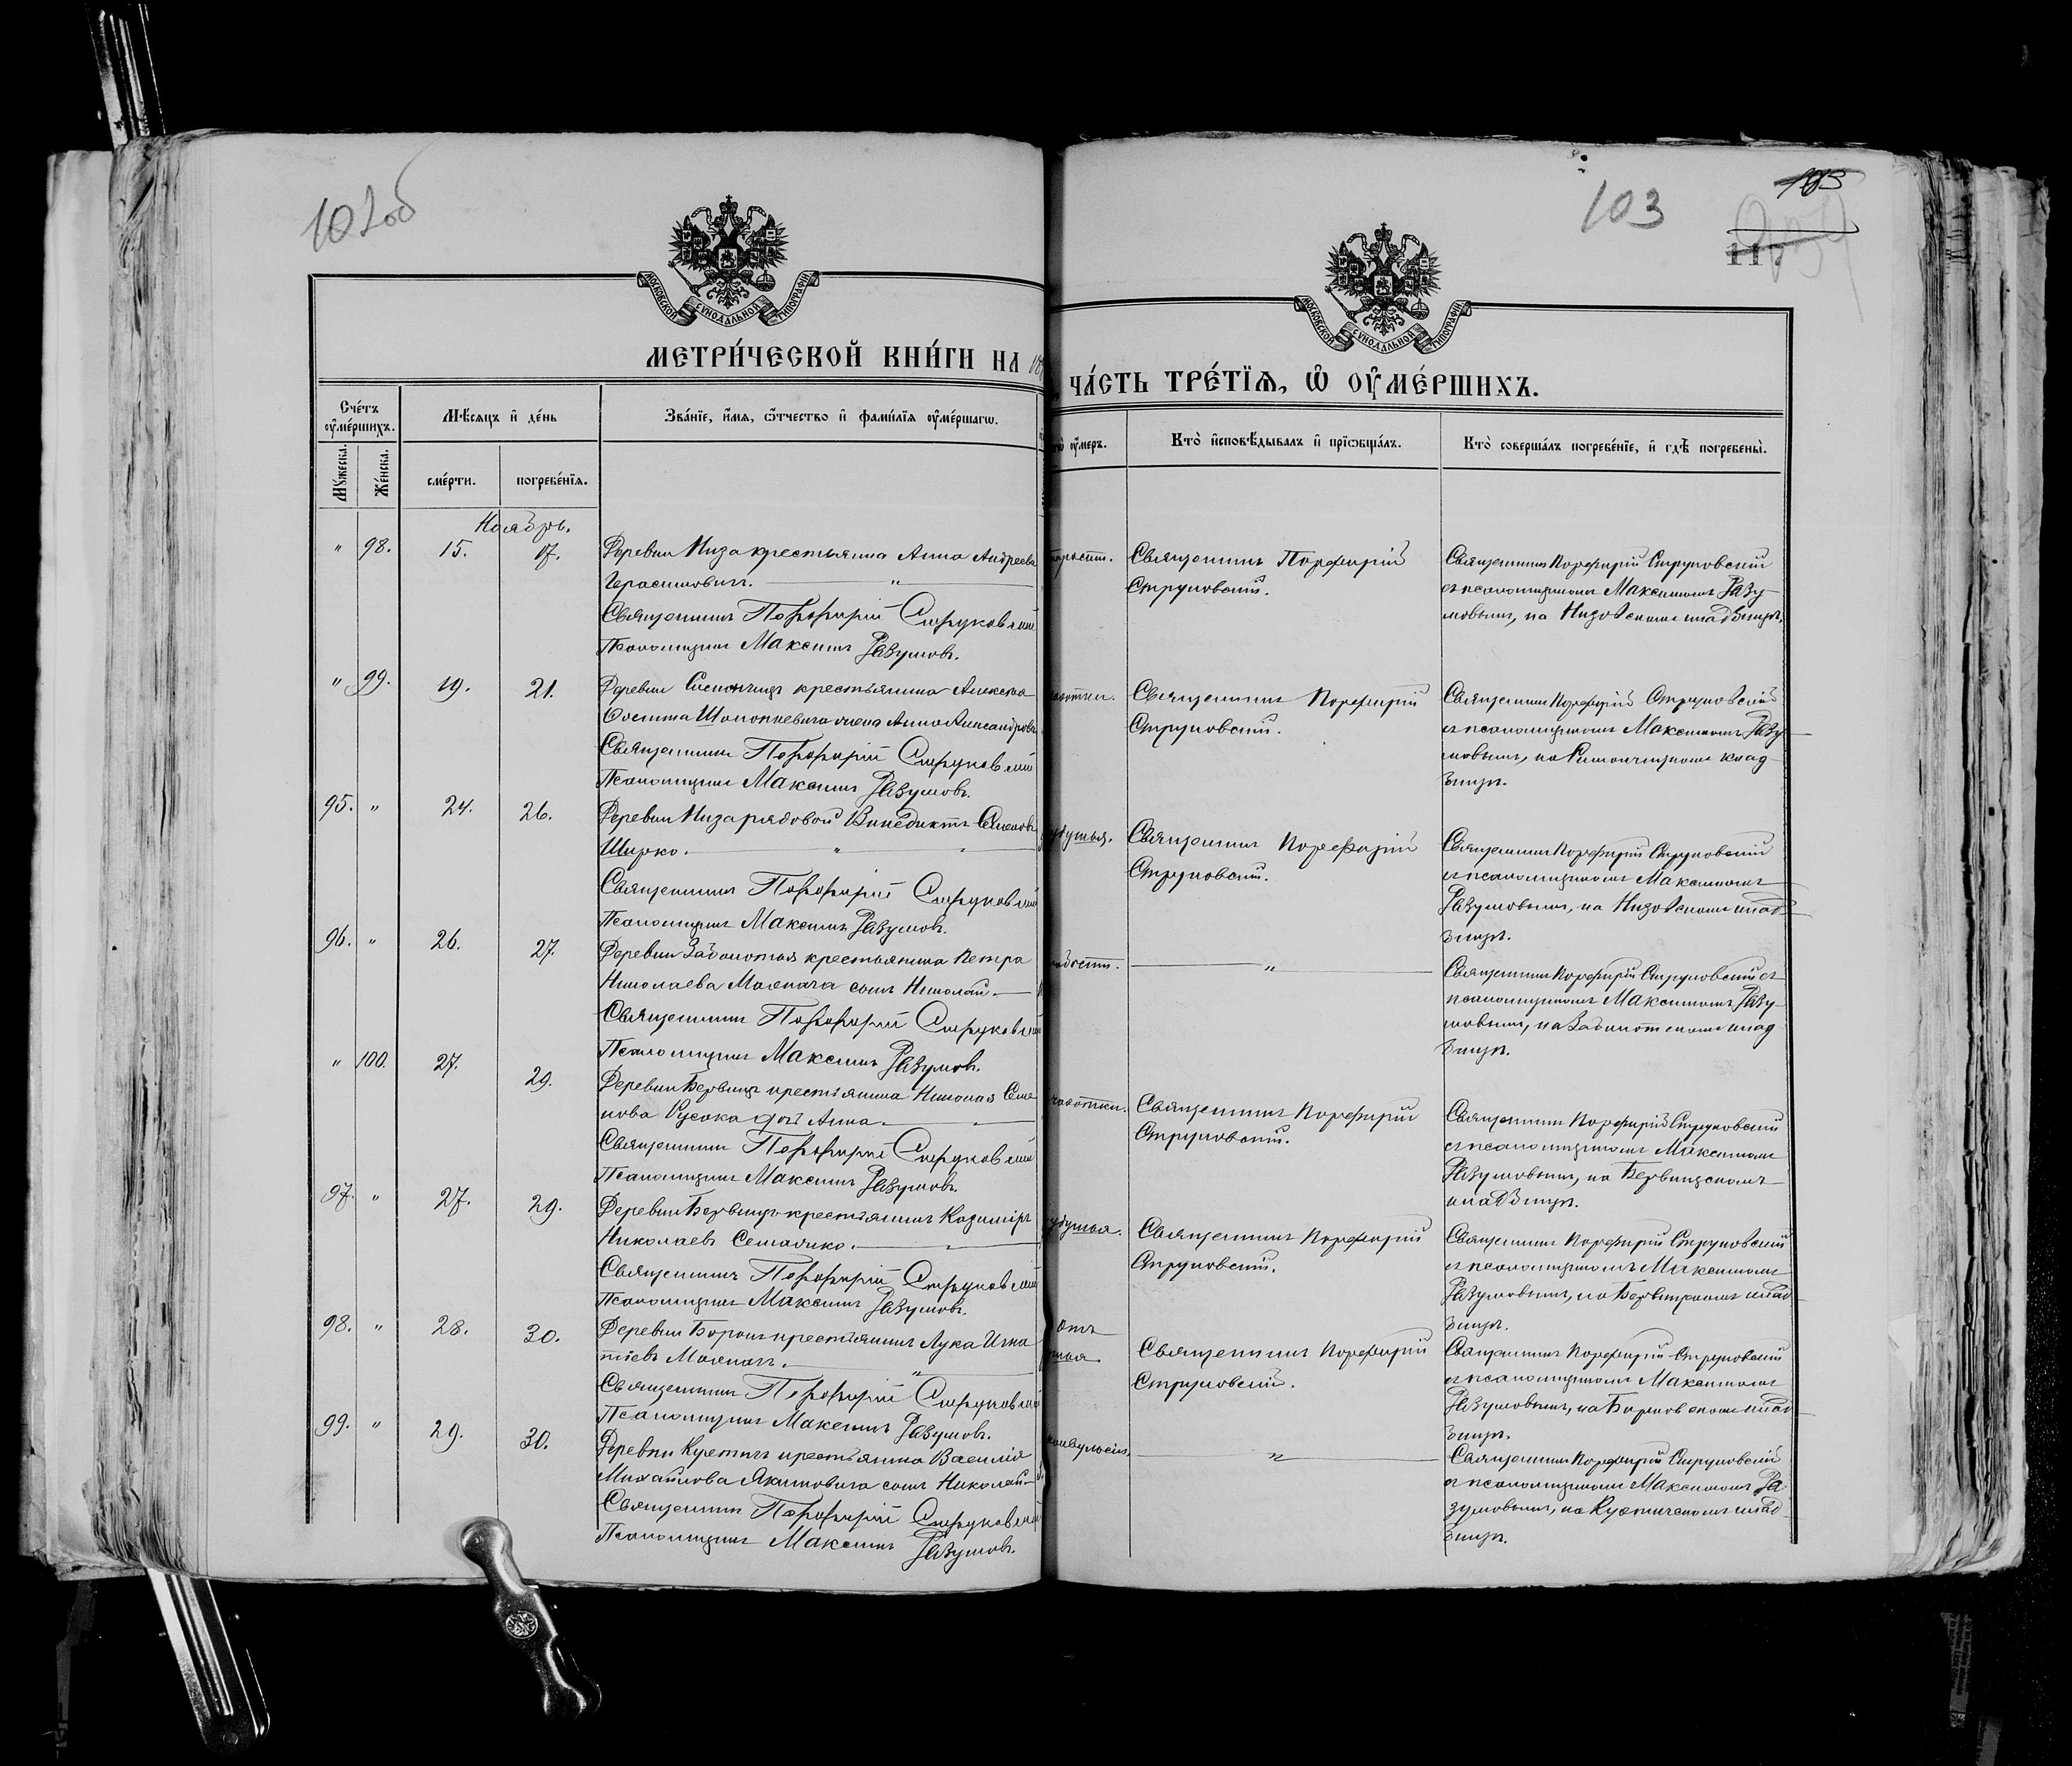 102об
103
103
117
МОСКОВСКОЙ СѴНОДАЛЬНОЙ ТИПОГРАФІИ
МОСКОВСКОЙ СѴНОДАЛЬНОЙ ТИПОГРАФІИ
МЕТРИ́ЧЕСКОЙ КНИ́ГИ НА 18
ЧА́СТЬ ТРЕ́ТІѦ, Ѡ҆ ОУ҆МЕ́РШИХЪ.
Сче́тъ оу҆ме́ршихъ.
Мѣ́сяцъ и҆ де́нь
Зва́ніе, и҆́мя, ѻ҆́тчество и҆ фами́лія оу҆ме́ршагѡ.
оу҆́меръ.
Кто̀ и҆сповѣ́дывалъ и҆ пріѡбща́лъ.
Кто̀ соверша́лъ погребе́ніе, и҆ гдѣ̀ погребены̀.
Мꙋ́жеска.
Же́нска.
сме́рти.
погребе́нія.
Ноябрь.
" 98. 15. 17.
Деревни Низа крестьянка Анна Андреева
Герасимовичъ. "
Священникъ Порфирій Струковскій
Псаломщикъ Максимъ Разумовъ.
Священникъ Порфирій
Струковскій.
Священникъ Порфирій Струковскій
съ псаломщикомъ Максимомъ Разу
мовымъ, на Низовскомъ кладбищѣ.
" 99. 19. 21.
Деревни крестьянина Алексѣя
жена Анна Александрова
Священникъ Порфирій Струковскій
Псаломщикъ Максимъ Разумовъ.
Священникъ Порфирій
Струковскій.
Священникъ Порфирій Струковскій
съ псаломщикомъ Максимомъ Разу
мовымъ, на клад
бищѣ.
95. " 24. 26.
Деревни Низа рядовой Винедиктъ Семеновъ
Ширко. "
Священникъ Порфирій Струковскій
Псаломщикъ Максимъ Разумовъ.
Священникъ Порфирій
Струковскій.
Священникъ Порфирій Струковскій
съ псаломщикомъ Максимомъ
Разумовымъ, на Низовскомъ клад
бищѣ.
96. " 26. 27.
Деревни Заболотья крестьянина Петра
Николаева сынъ Николай.
Священникъ Порфирій Струковскій
Псаломщикъ Максимъ Разумовъ.
"
Священникъ Порфирій Струковскій съ
псаломщикомъ Максимомъ Разу
мовымъ, на Заболотскомъ клад
бищѣ.
" 100. 27. 29.
Деревни крестьянина Николая Семе
нова Русака дочь Анна.
Священникъ Порфирій Струковскій
Псаломщикъ Максимъ Разумовъ.
чахотки.
Священникъ Порфирій
Струковскій.
Священникъ Порфирій Струковскій
съ псаломщикомъ Максимомъ
Разумовымъ, на
кладбищѣ.
97. " 27. 29.
Деревни крестьянинъ Казиміръ
Николаевъ Семашко.
Священникъ Порфирій Струковскій
Псаломщикъ Максимъ Разумовъ.
Священникъ Порфирій
Струковскій.
Священникъ Порфирій Струковскій
съ псаломщикомъ Максимомъ
Разумовымъ, на клад
бищѣ.
98. " 28. 30.
Деревни крестьянинъ Лука Игна
тіевъ
Священникъ Порфирій Струковскій
Псаломщикъ Максимъ Разумовъ.
отъ
Священникъ Порфирій
Струковскій.
Священникъ Порфирій Струковскій
съ псаломщикомъ Максимомъ
Разумовымъ, на клад
бищѣ.
99. " 29. 30.
Деревни крестьянина Василія
Михайлова Якимовича сынъ Николай
Священникъ Порфирій Струковскій
Псаломщикъ Максимъ Разумовъ.
"
Священникъ Порфирій Струковскій
съ псаломщикомъ Максимомъ Ра
зумовымъ, на клад
бищѣ.